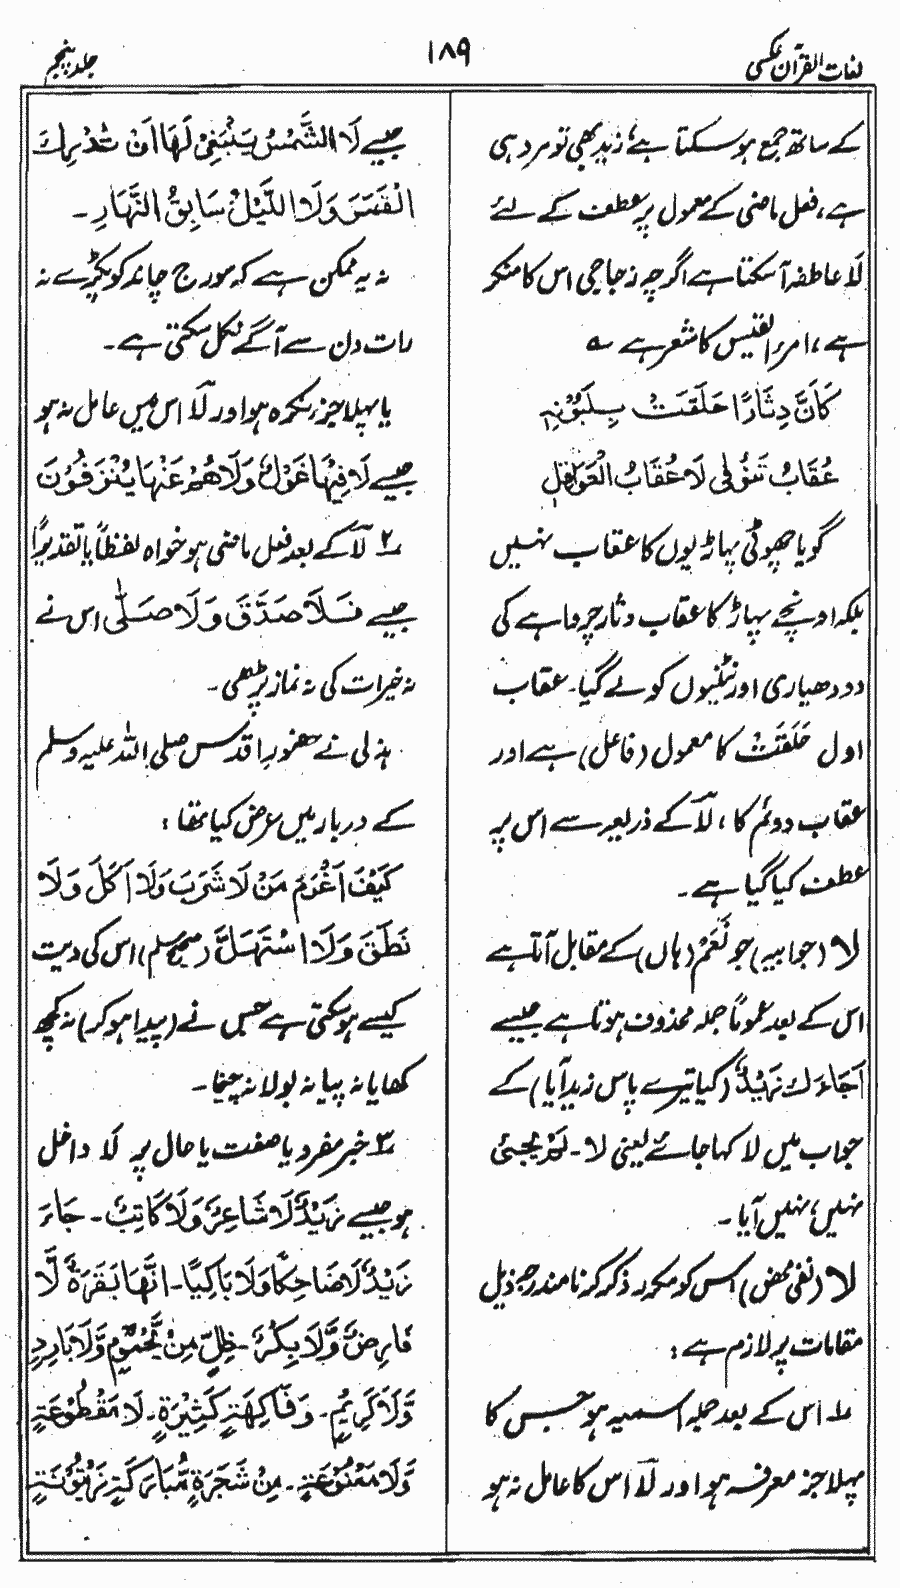 لغات القرآن عکسی
۱۸۹
جلد پنجم
کے ساتھ جمع ہو سکتا ہے، زید بھی تو مرد ہی
ہے، فعل ماضی کے معمول پر عطف کے لئے
لَا عاطفہ آ سکتا ہے اگرچہ زجاجی اس کا منکر
ہے، امرأ القیس کا شعر ہے ؎
کَاَنَّ دِثَارًا حَلَقَتْ بِلَبُوْنِہٖ
عُقَابُ تَنُوْفٰی لَا عُقَابُ الْقَوَاعِلِ
گویا چھوٹی پہاڑیوں کا عقاب نہیں
بلکہ اونچے پہاڑ کا عقاب دثار چرواہے کی
دودھیاری اونٹنیوں کو لے گیا۔ عقاب
اول حَلَقَتْ کا معمول (فاعل) ہے اور
عقاب دوئم کا، لَا کے ذریعہ سے اس پر
عطف کیا گیا ہے۔
لا (جوابیہ) جو نَعَمْ (ہاں) کے مقابل آتا ہے
اس کے بعد عموماً جملہ محذوف ہوتا ہے جیسے
اَجَاءَكَ زَیْدٌ (کیا تیرے پاس زید آیا) کے
جواب میں لا کہا جائے یعنی لا۔ لَمْ یَجِئْ
نہیں، نہیں آیا۔
لا (نفی محض) اس کو مکرر ذکر کرنا مندرجہ ذیل
مقامات پر لازم ہے:
۱؎ اس کے بعد جملہ اسمیہ ہو جس کا
پہلا جز معرفہ ہو اور لَا اس کا عامل نہ ہو
جیسے لَا الشَّمْسُ یَنْبَغِیْ لَهَا اَنْ تُدْرِكَ
الْقَمَرَ وَلَا اللَّیْلُ سَابِقُ النَّهَارِ۔
نہ یہ ممکن ہے کہ سورج چاند کو پکڑے نہ
رات دن سے آگے نکل سکتی ہے۔
یا پہلا جز، نکرہ ہو اور لَا اس میں عامل نہ ہو
جیسے لَا فِیْهَا غَوْلٌ وَلَا هُمْ عَنْهَا یُنْزَفُوْنَ
۲؎ لَا کے بعد فعل ماضی ہو خواہ لفظاً یا تقدیراً
جیسے فَلَا صَدَّقَ وَلَا صَلّٰی اس نے
نہ خیرات کی نہ نماز پڑھی۔
ہذلی نے حضورِ اقدس صلی اللہ علیہ وسلم
کے دربار میں عرض کیا تھا:
کَیْفَ اَغْرَمُ مَنْ لَا شَرَبَ وَلَا اَکَلَ وَلَا
نَطَقَ وَلَا اسْتَهَلَّ (صحیح مسلم) اس کی دیت
کیسے ہو سکتی ہے جس نے (پیدا ہو کر) نہ کچھ
کھایا نہ پیا نہ بولا نہ چیخا۔
۳؎ خبر مفرد یا صفت یا حال پر لَا داخل
ہو جیسے زَیْدٌ لَا شَاعِرٌ وَلَا کَاتِبٌ۔ جَاءَ
زَیْدٌ لَا ضَاحِکًا وَلَا بَاکِیًا۔ اِنَّهَا بَقَرَةٌ لَّا
فَارِضٌ وَّلَا بِکْرٌ۔ ظِلٍّ مِنْ یَّحْمُوْمٍ وَّلَا بَارِدٍ
وَّلَا کَرِیْمٍ۔ وَفَاکِهَةٍ کَثِیْرَةٍ۔ لَا مَقْطُوْعَةٍ
وَّلَا مَمْنُوْعَةٍ۔ مِنْ شَجَرَةٍ مُّبَارَکَةٍ زَیْتُوْنَةٍ